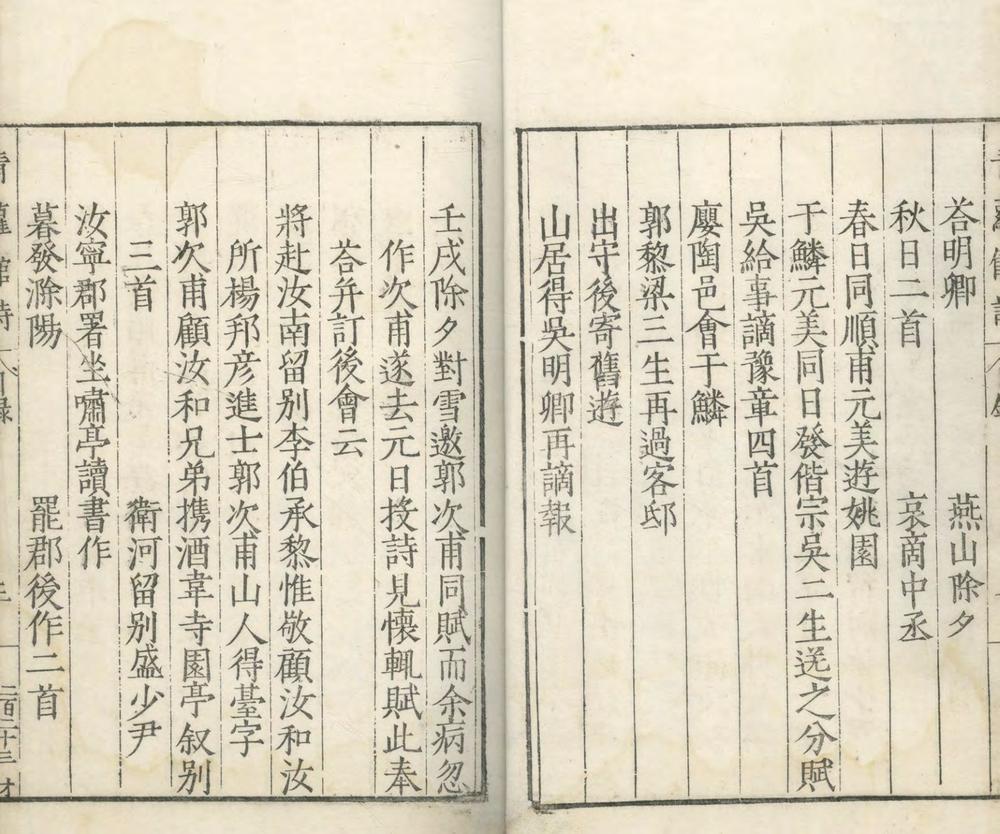 荅明卿　燕山除夕
秋日二首　哀商中丞
春日同順甫元美遊姚園
于鱗元美同日發偕宗吳二生送之分賦
吳給事謫豫章四首
廮陶邑會于鱗
郭黎梁三生再過客邸
出守後寄舊遊
山居得吳明卿再謫報
壬戌除夕對雪邀郭次甫同賦而余病忽
作次甫遂去元日投詩見懷輒賦此奉
荅并訂後會云
將赴汝南留別李伯承黎惟敬顧汝和汝
所楊邦彦進士郭次甫山人得臺字
郭次甫顧汝和兄弟携酒韋寺園亭叙别
三首　衛河留别盛少尹
汝寧郡署坐嘯亭讀書作
暮發滁陽　罷郡後作二首
青蘿館詩　目錄